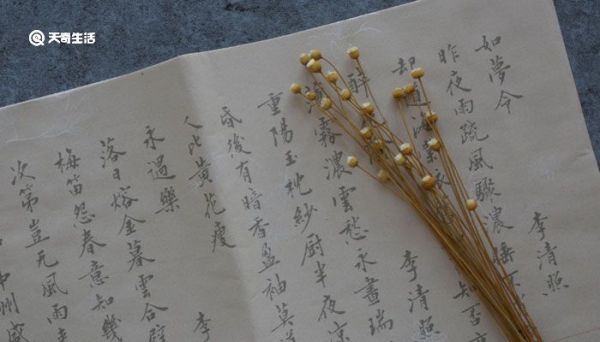 天奇生活
如夢令 李清照
昨夜雨疏風驟濃睡
却道海棠依 知否
醉 李清照
霧濃雲愁永晝瑞
重陽玉枕紗厨半夜涼
昏後有暗香盈袖莫道
人比黃花瘦
永遇樂 李
落日熔金暮雲合璧
梅笛怨春意知幾
次第豈无風雨來
中州盛